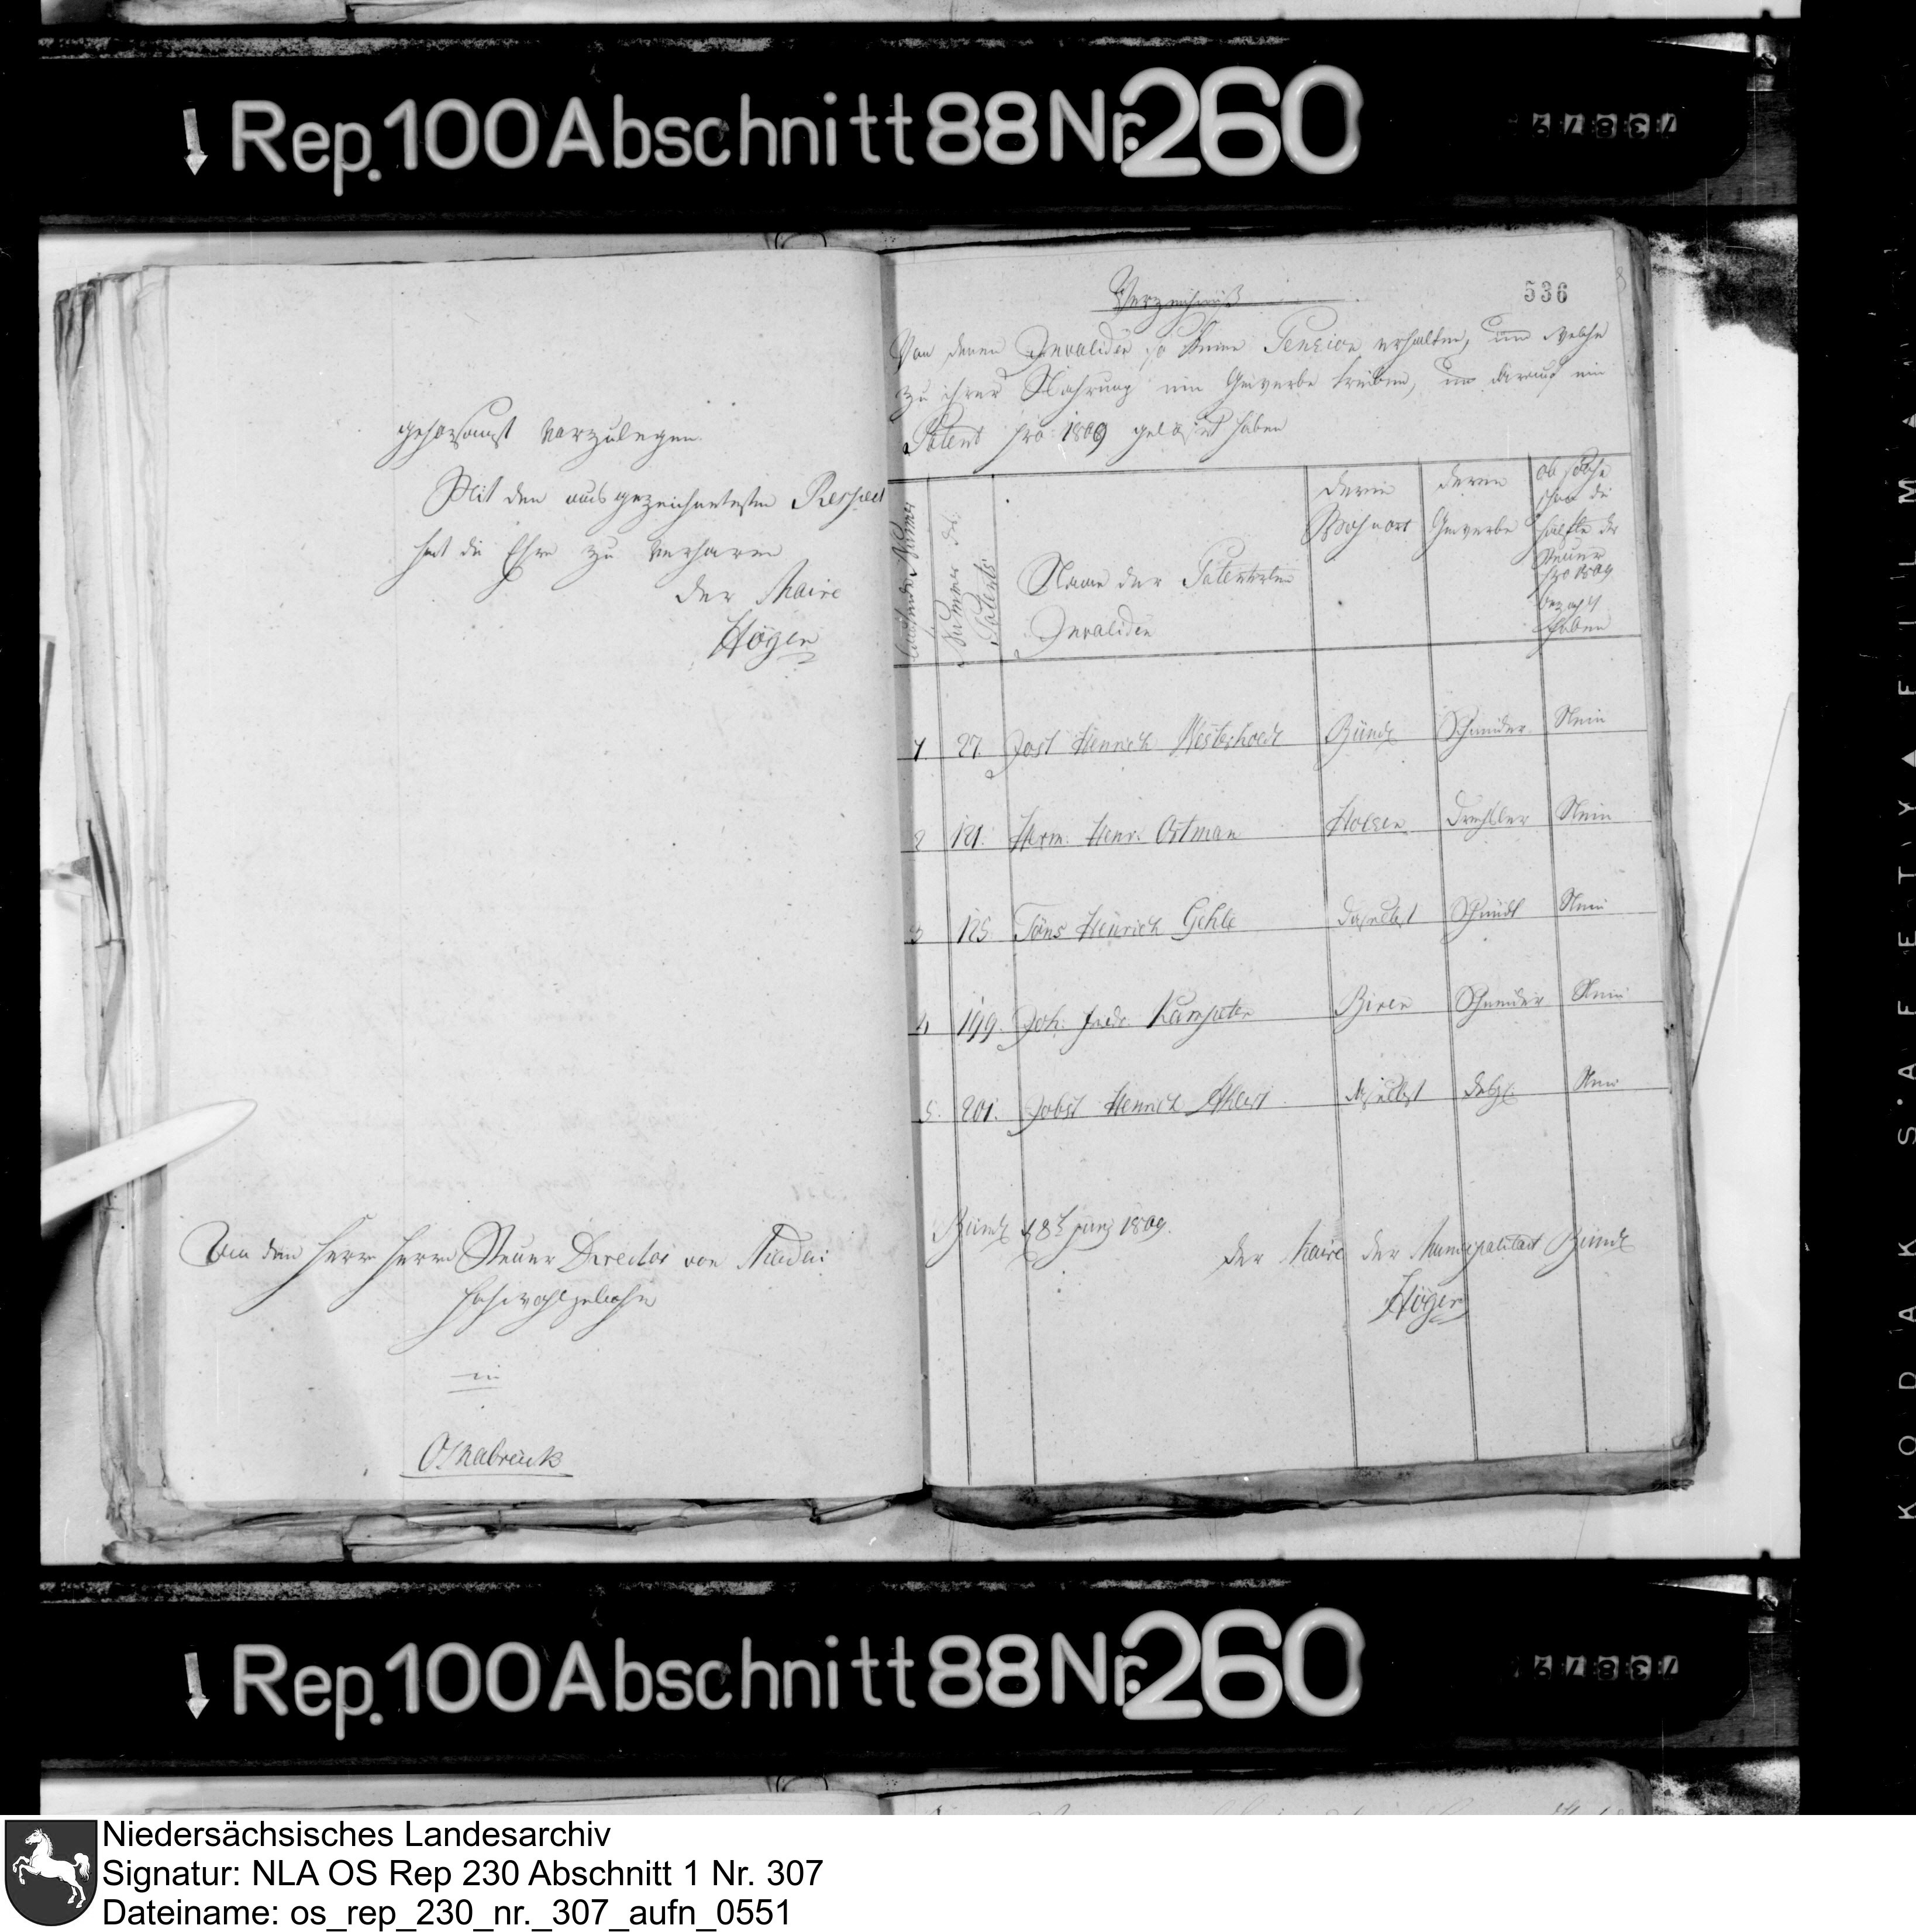 Rep. 100 Abschnitt 88 Nr. 260
gehorsamst vorzulegen.
Mit den ausgezeichnetesten Respect
hat die Ehre zu verharren
der Maire
Höger
An den Herrn Herrn Steuer Director von
Hochwohlgebohrn
in
Osnabrück
536
Verzeichniß
Von denen Invaliden so keine Pension erhalten, und welche
zu ihrer Nahrung ein Gewerbe treiben, und darauf ein
Patent pro 1809 gelöset haben
Laufende Numer
Numer des Patents
Name der Patentirten
Invaliden
deren
Wohnort
deren
Gewerbe
ob solche
schon die
Hälfte der
Steuer
pro 1809
bezahlt
haben
1. 27. Jost Henrich Westerhold Bünde Schneider Nein
2 121. Herm. Henr. Ostman Holsen Drechsler Nein
3 125. Töns Heinrich Gehle daselbst Nein
4 199. Joh. Fried. Kampeter Biren Schneider Nein
5. 201. Jobst Henrich daselbst Nein
Bünde 1809.
der Maire der Municipalitaet Bünde
Höger
Rep. 100 Abschnitt 88 Nr. 260
KODAK SAFETY FILM
Niedersächsisches Landesarchiv
Signatur: NLA OS Rep 230 Abschnitt 1 Nr. 307
Dateiname: os_rep_230_nr._307_aufn_0551